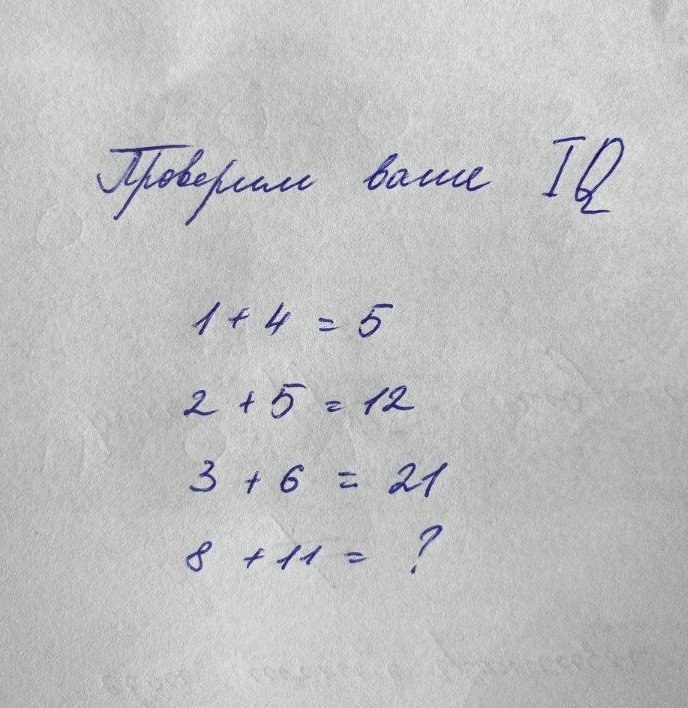 Проверим ваше IQ
1 + 4 = 5
2 + 5 = 12
3 + 6 = 21
8 + 11 = ?